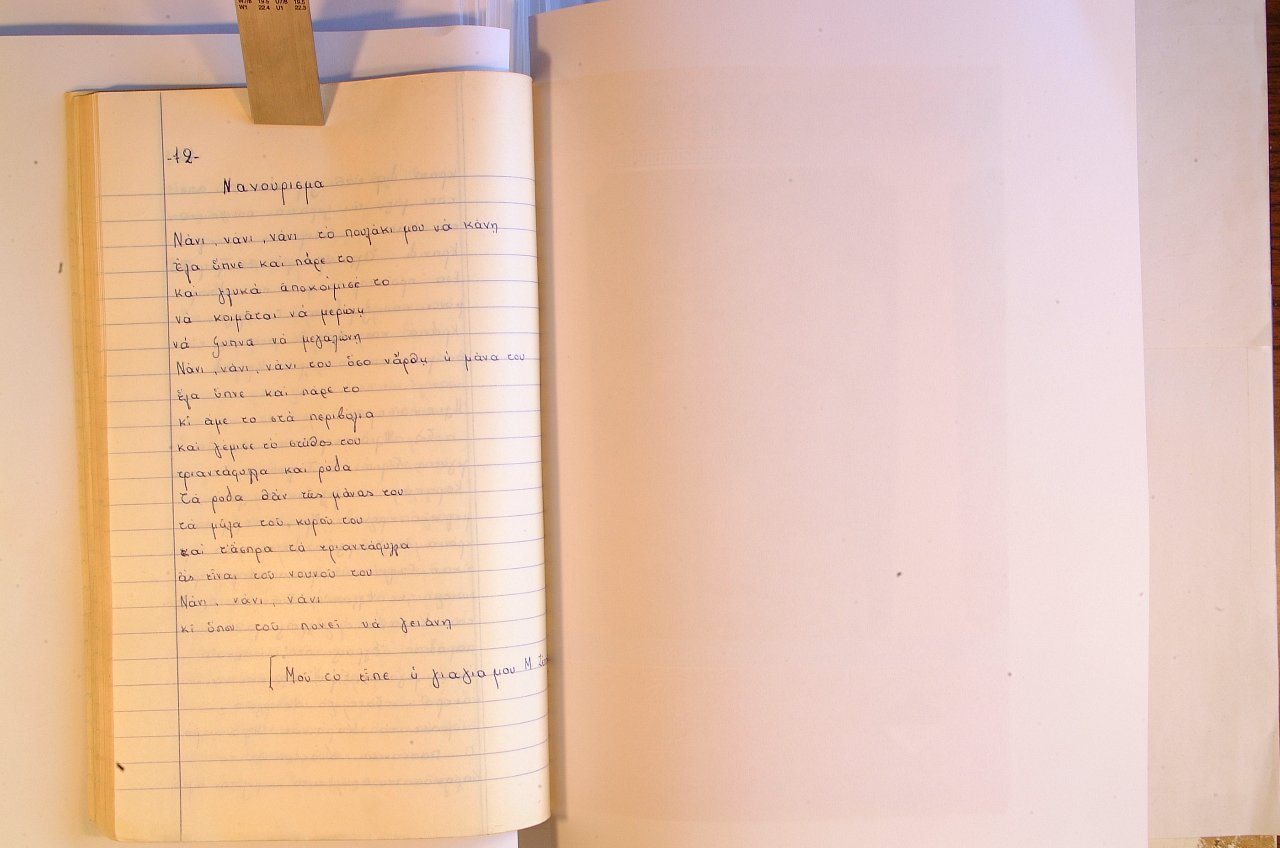 W7/B 19.5 U7/B 19.5
W1 22.4 U1 22.3
-12-
Νανούρισμα
Νάνι, νάνι, νάνι τό πουλάκι μου νά κάνη
ἔλα ὕπνε καί πάρε το
καί γλυκά ἀποκοίμισέ το
νά κοιμᾶται νά μερώνη
νά ξυπνα νά μεγαλώνη
Νάνι, νάνι, νάνι του ὅσο νἄρθη ἡ μάνα του
ἔλα ὕπνε καί πάρε το
κι ἀμε το στά περιβόλια
καί γέμισε τό στῆθος του
τριαντάφυλλα καί ρόδα
Τά ροδα θἀν τῆς μάνας του
τά μῆλα τοῦ κυροῦ του
καί τἄσπρα τά τριαντάφυλλα
ἄς εἶναι τοῦ νουνοῦ του
Νάνι, νάνι, νάνι
κι ὅπου τοῦ πονεῖ νά γειάνη
[Μου το εἶπε ἡ γιαγια μου Μ